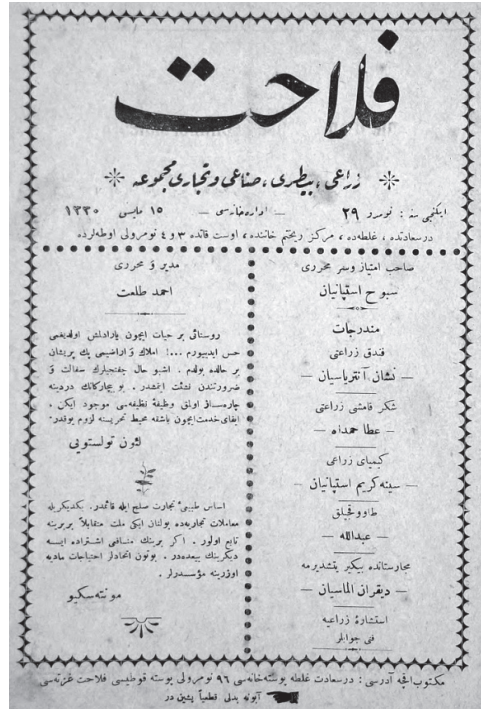 فلاحت
زراعی، بیطری، صناعی و تجاری مجموعه
ایکنجی سنه : نومرو ۲۹ — اداره‌خانه‌سی — ۱۵ مایس ۱۳۳۰
درسعادتده، غلطه‌ده، مرکز ریختم خاننده، اوست قاتده ۳ و ٤ نومرولی اوطه‌لرده
صاحب امتیاز و سر محرری
سبوح استپانیان
مندرجات
فندق زراعتی
— نشان آنتریاسیان —
شکر قامشی زراعتی
— عطا حمداﷲ —
کیمیای زراعی
— سینه کریم استپانیان —
طاووقجیلق
— عبداللّه —
مجارستانده بیکیر یتشدیرمه
— دیقران الماسیان —
استشارۀ زراعیه
فنی جوابلر
مدیر و محرری
احمد طلعت
روستائی بر حیات ایچون یارادلمش اولدیغمی
حس ایدییورم...! املاك و اراضیمی پك پریشان
بر حالده بولدم. اشبو حال چفتجیلرك سفالت و
ضرورتندن نشئت ایتمشدر. بو بیچارکانك دردینه
چاره‌ساز اولمق وظیفۀ نظیفه‌سی موجود ایکن.
ایفای خدمت ایچون باشقه محیط تحریسنه لزوم یوقدر.
لئون تولستویی
اساس طبیعیٔ تجارت صلح ایله قائمدر. یکدیکریله
معاملات تجاریه‌ده بولنان ایکی ملت متقابلاً بربرینه
تابع اولور. اکر برینك منافعی اشتراده ایسه
دیکرینك بیعده‌در. بوتون اتحادلر احتیاجات مادیه
اوزرینه مؤسسدرلر.
مونته‌سکیو
مکتوب الجه آدرسی : درسعادت غلطه پوسته‌خانه‌سی ۹٦ نومرولی پوسته قوطیسی فلاحت غزته‌سی
آبونه بدلی قطعیاً پشین در